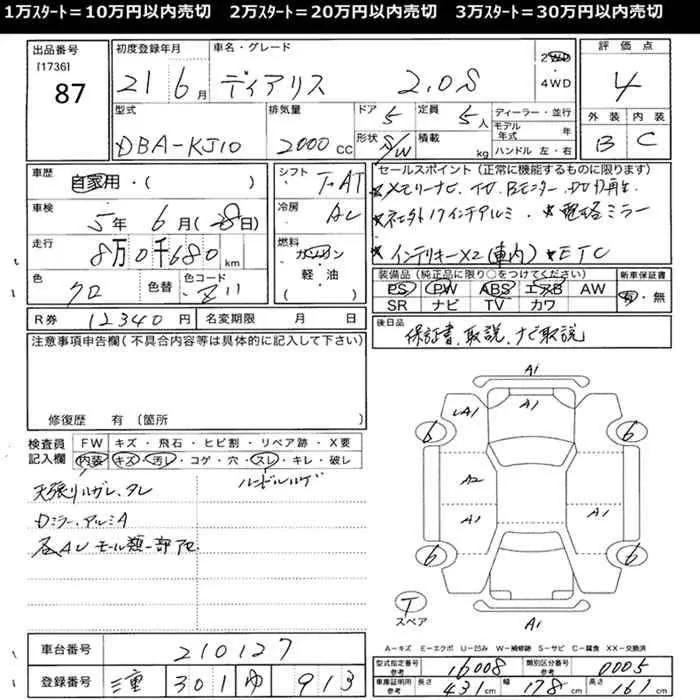 1万スタート＝10万円以内売切　2万スタート＝20万円以内売切　3万スタート＝30万円以内売切
出品番号
[1736]
87
初度登録年月
21 6月
車名・グレード
ディアリス 2.0S
2WD
・4WD
評価点
4
外装 内装
B C
型式
DBA-KJ10
排気量
2000 CC
ドア 5
形状 S/W
定員 5人
積載 kg
ディーラー・並行
モデル年式 年
ハンドル 左・右
車歴
自家用・( )
車検
5年 6月(28日)
走行
8万0千680km
色
クロ
色替
色コード
Z11
シフト
F AT
冷房
AC
燃料
ガソリン
・
軽・油
セールスポイント(正常に機能するものに限ります)
★メモリーナビ、TV、Bモニター、DVD再生
★社外17インチアルミ ★電格ミラー
★インテリキーX2(車内) ★ETC
装備品(純正品に限り○をつけてください)
PS PW ABS エアB AW
SR ナビ TV カワ
新車保証書
有・無
R券 12340円
名変期限 月 日
後日品
保証書、取説、ナビ取説
注意事項申告欄(不具合内容等は具体的に記入して下さい)
修復歴 有〔箇所 〕
検査員記入欄
FW キズ・飛石・ヒビ割・リペア跡・X要
内装 キズ・汚レ・コゲ・穴・スレ・キレ・破レ
ハンドルハゲ
天張りハガレ、タレ
Dミラー、アルミA
各AU モール類一部
A1
A1
A1
6
6
A2
A1
A1
6
6
T
スペア
A1
A＝キズ E＝エクボ U＝凹み W＝補修跡 S＝サビ C＝腐食 XX＝交換済
車台番号 210127
登録番号 三重 301 ゆ 913
型式指定番号 参考 16008
類別区分番号 参考 0005
車庫証明用 参考 長さ 431cm 幅 178cm 高さ 161cm